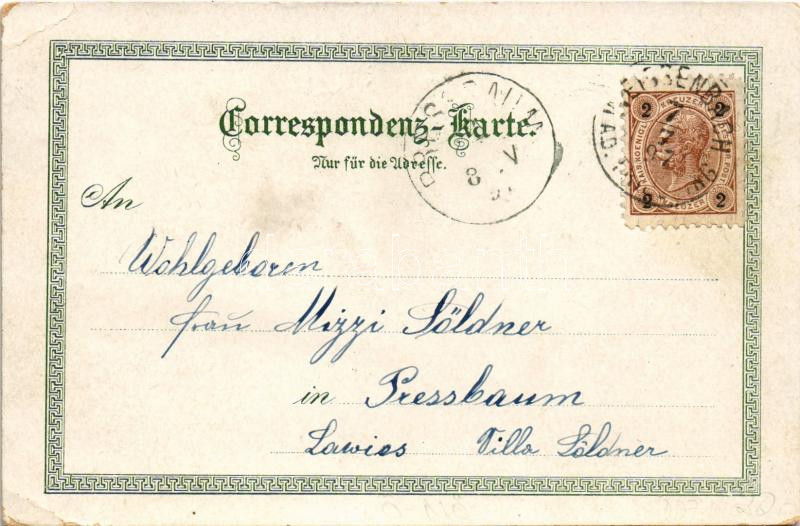 Correspondenz-Karte.
Nur für die Adresse.
An
Wohlgeboren
Frau Mizzi Söldner
in Pressbaum
Lawies Villa Söldner
PRESSBAUM
8 V
2 KREUZER 2
2 KREUZER 2